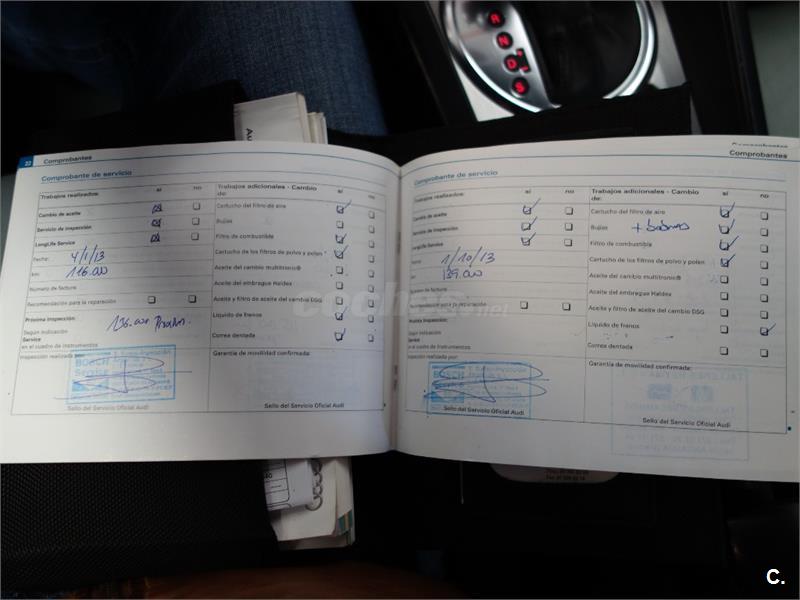 R
N
D
S
22 Comprobantes
Comprobante de servicio
Trabajos realizados: sí no
Cambio de aceite
Servicio de inspección
LongLife Service
Fecha: 4/1/13
km: 116.000
Número de factura
Recomendación para la reparación
Próxima inspección: 136.000
Según indicación
Service
en el cuadro de instrumentos
Inspección realizada por:
BOSCH
Service
Sello del Servicio Oficial Audi
Trabajos adicionales - Cambio de: sí no
Cartucho del filtro de aire
Bujías
Filtro de combustible
Cartucho de los filtros de polvo y polen
Aceite del cambio multitronic®
Aceite del embrague Haldex
Aceite y filtro de aceite del cambio DSG
Líquido de frenos
Correa dentada
Garantía de movilidad confirmada:
Sello del Servicio Oficial Audi
Comprobantes
Comprobantes
Comprobante de servicio
Trabajos realizados: sí no
Cambio de aceite
Servicio de inspección
LongLife Service
Fecha: 1/10/13
km: 139.000
Número de factura
Recomendación para la reparación
Próxima inspección:
Según indicación
Service
en el cuadro de instrumentos
Inspección realizada por:
BOSCH
Service
Sello del Servicio Oficial Audi
Trabajos adicionales - Cambio de: sí no
Cartucho del filtro de aire
Bujías
Filtro de combustible
Cartucho de los filtros de polvo y polen
Aceite del cambio multitronic®
Aceite del embrague Haldex
Aceite y filtro de aceite del cambio DSG
Líquido de frenos
Correa dentada
Garantía de movilidad confirmada:
Sello del Servicio Oficial Audi
coches.net
C.